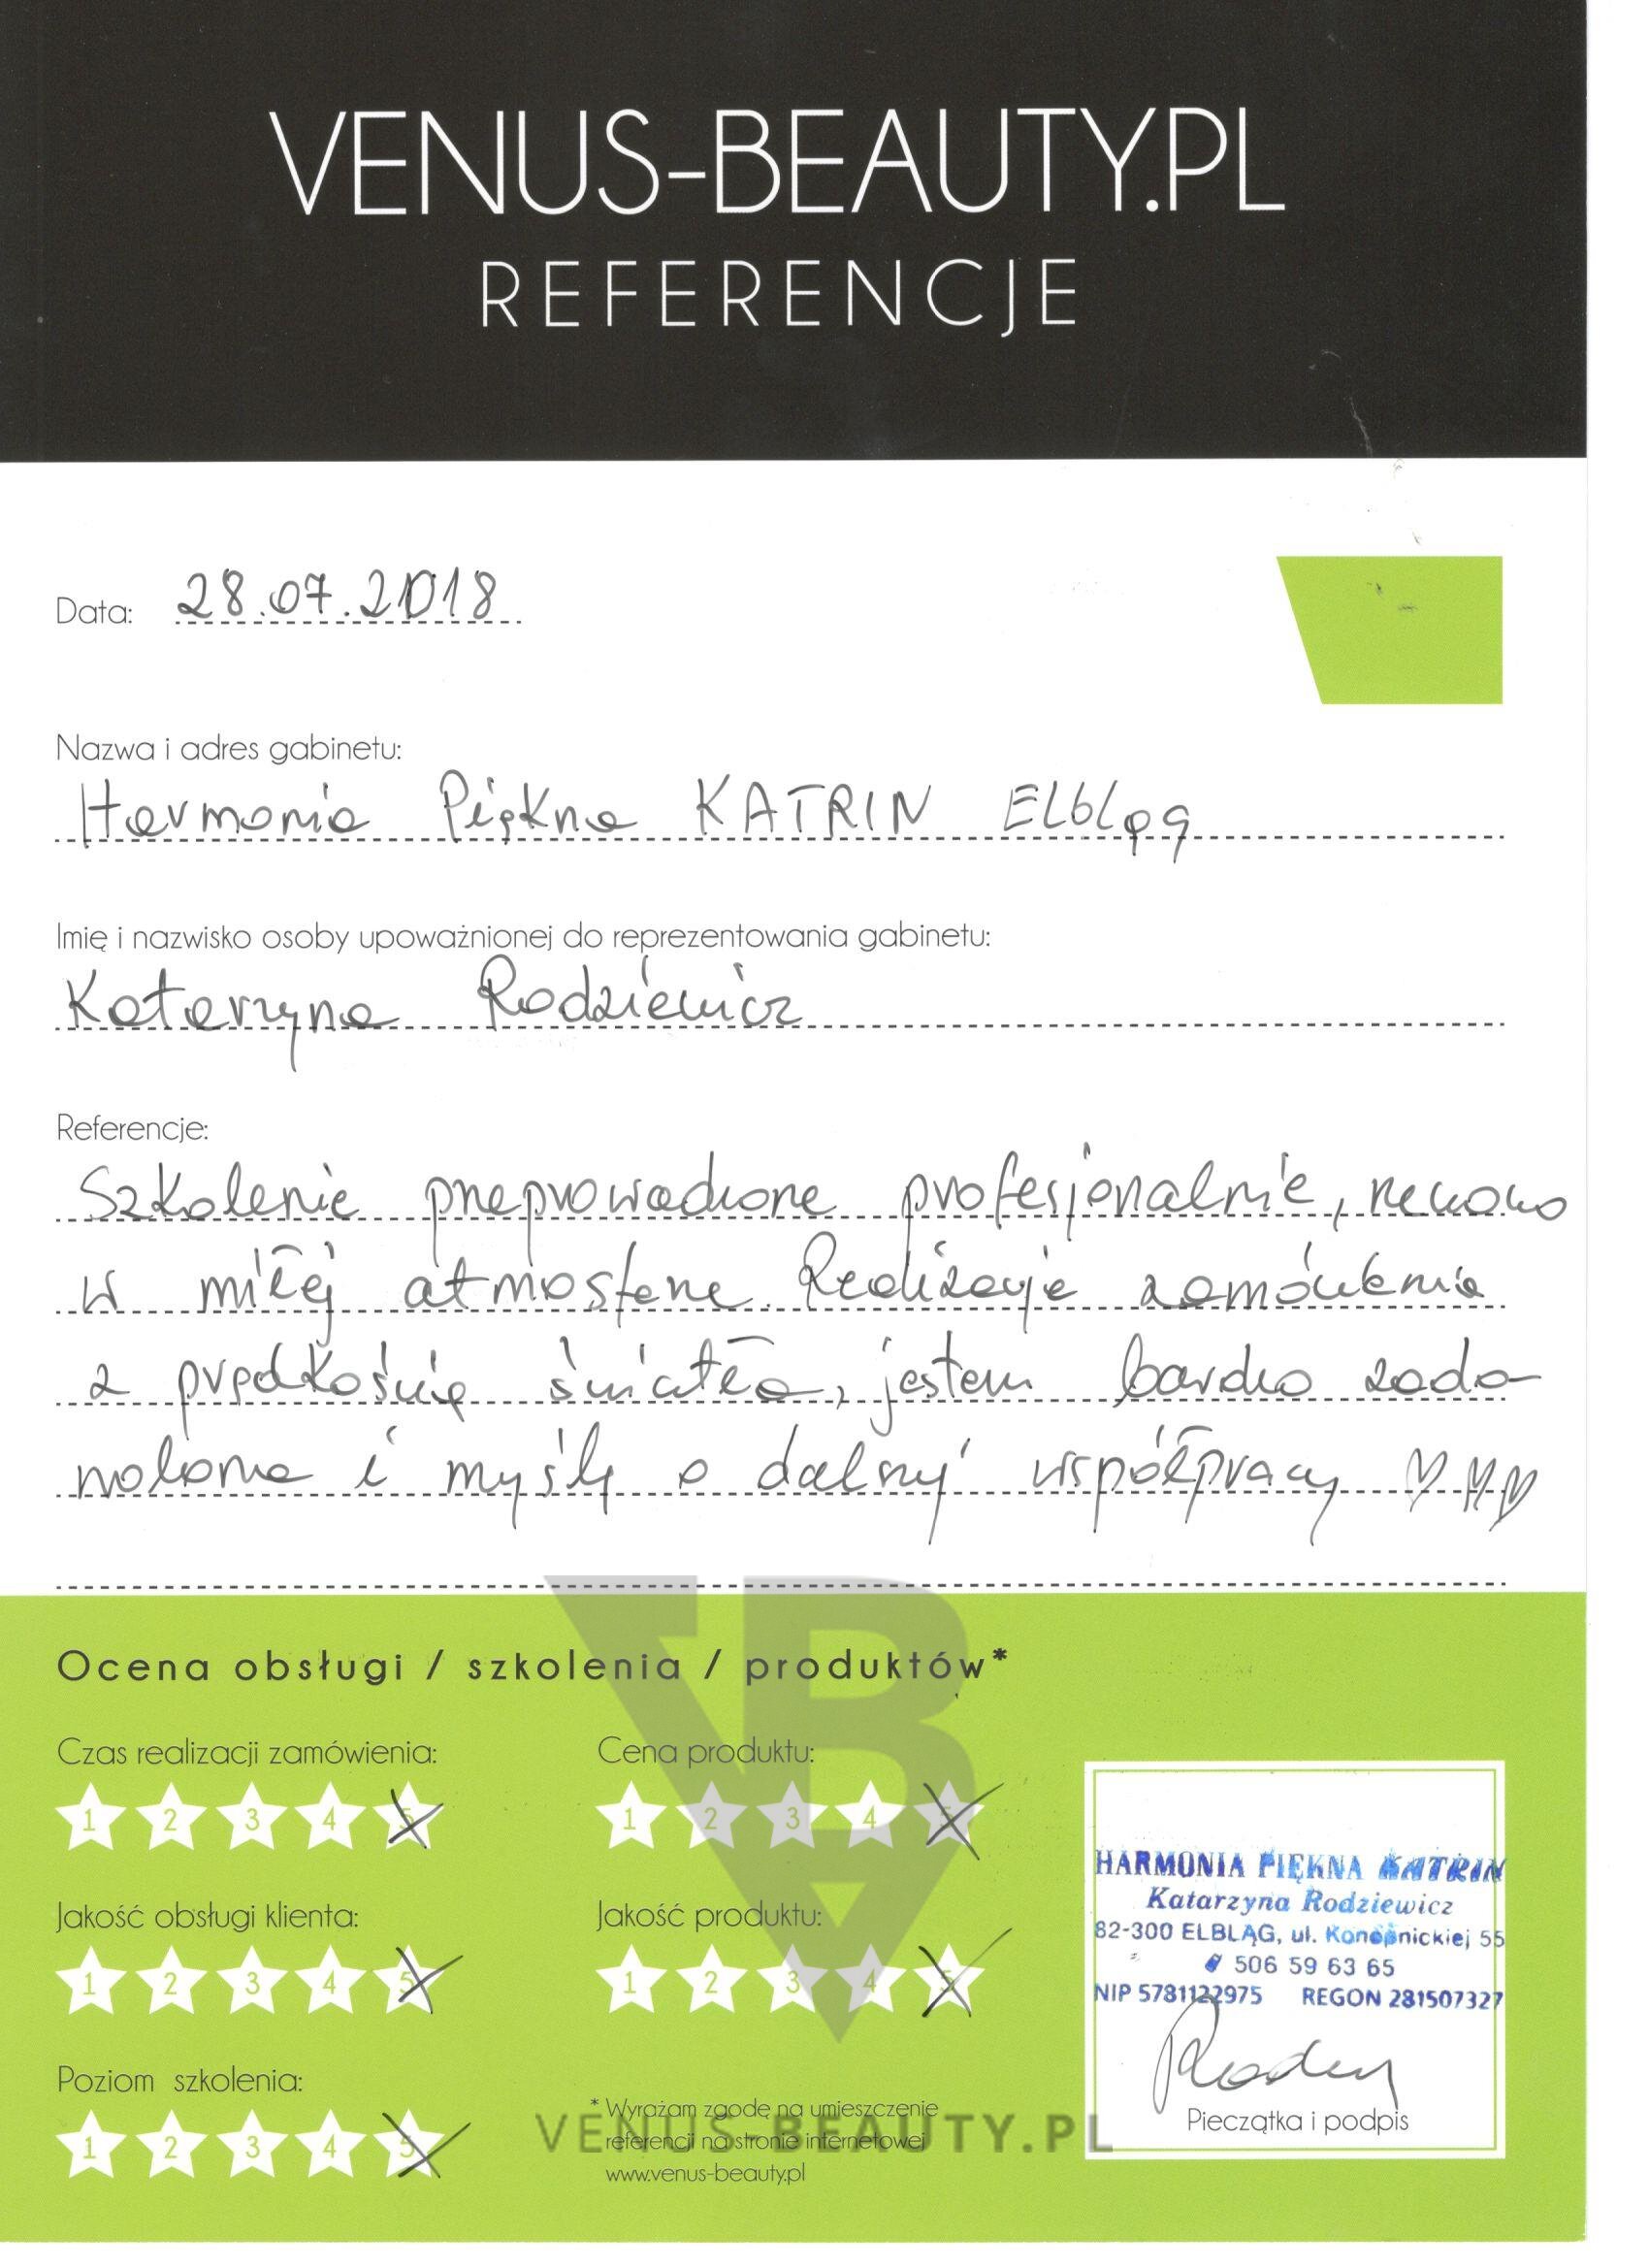 VENUS-BEAUTY.PL
REFERENCJE
Data: 28.07.2018
Nazwa i adres gabinetu:
Harmonia Piękna KATRIN Elbląg
Imię i nazwisko osoby upoważnionej do reprezentowania gabinetu:
Katarzyna Rodziewicz
Referencje:
Szkolenie przeprowadzone profesjonalnie, rzeczowo
w miłej atmosferze. Realizacja zamówienia
z prędkością światła, jestem bardzo zado-
wolona i myślę o dalszej współpracy ♡♡♡
Ocena obsługi / szkolenia / produktów*
Czas realizacji zamówienia:
1 2 3 4 5
Cena produktu:
1 2 3 4 5
Jakość obsługi klienta:
1 2 3 4 5
Jakość produktu:
1 2 3 4 5
Poziom szkolenia:
1 2 3 4 5
* Wyrażam zgodę na umieszczenie
referencji na stronie internetowej
www.venus-beauty.pl
VENUS-BEAUTY.PL
HARMONIA PIĘKNA KATRIN
Katarzyna Rodziewicz
82-300 ELBLĄG, ul. Konopnickiej 55
506 59 63 65
NIP 5781122975 REGON 281507327
Pieczątka i podpis